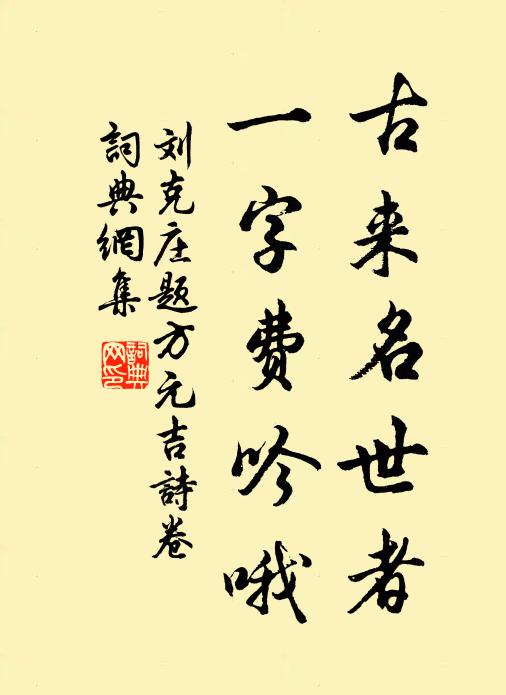 古来名世者
一字费吟哦
刘克庄题方元吉詩卷
詞典網集
詞典網印